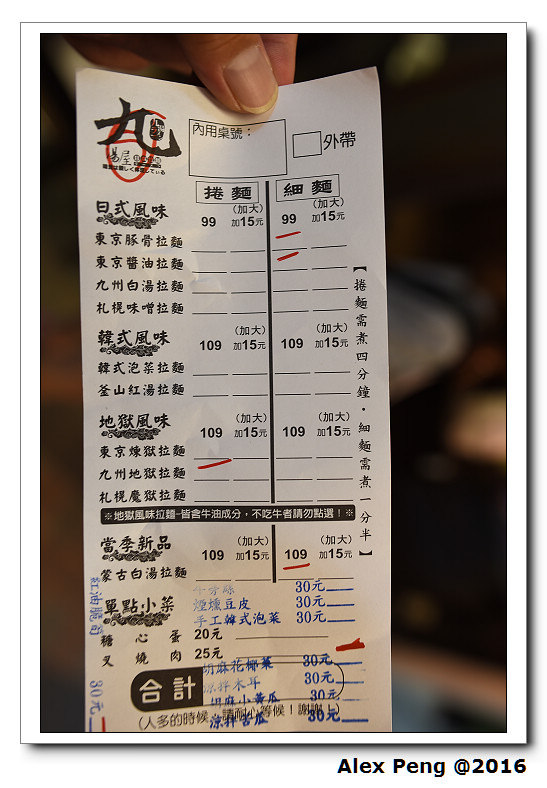 九
湯屋
內用桌號：
外帶
捲麵 細麵
日式風味 99 (加大) 加15元 99 (加大) 加15元
東京豚骨拉麵
東京醬油拉麵
九州白湯拉麵
札幌味噌拉麵
韓式風味 109 (加大) 加15元 109 (加大) 加15元
韓式泡菜拉麵
釜山紅湯拉麵
地獄風味 109 (加大) 加15元 109 (加大) 加15元
東京煉獄拉麵
九州地獄拉麵
札幌魔獄拉麵
【捲麵需煮四分鐘・細麵需煮一分半】
※地獄風味拉麵-皆含牛油成分，不吃牛者請勿點選！※
當季新品 109 (加大) 加15元 109 (加大) 加15元
蒙古白湯拉麵
30元
單點小菜 煙燻豆皮 30元
手工韓式泡菜 30元
糖心蛋 20元
叉燒肉 25元
紅油脆筍 30元
胡麻花椰菜 30元
合計 涼拌木耳 30元
胡麻小黃瓜 30元
(人多的時候，請耐心等候！謝謝！)
涼拌苦瓜 30元
Alex Peng @2016